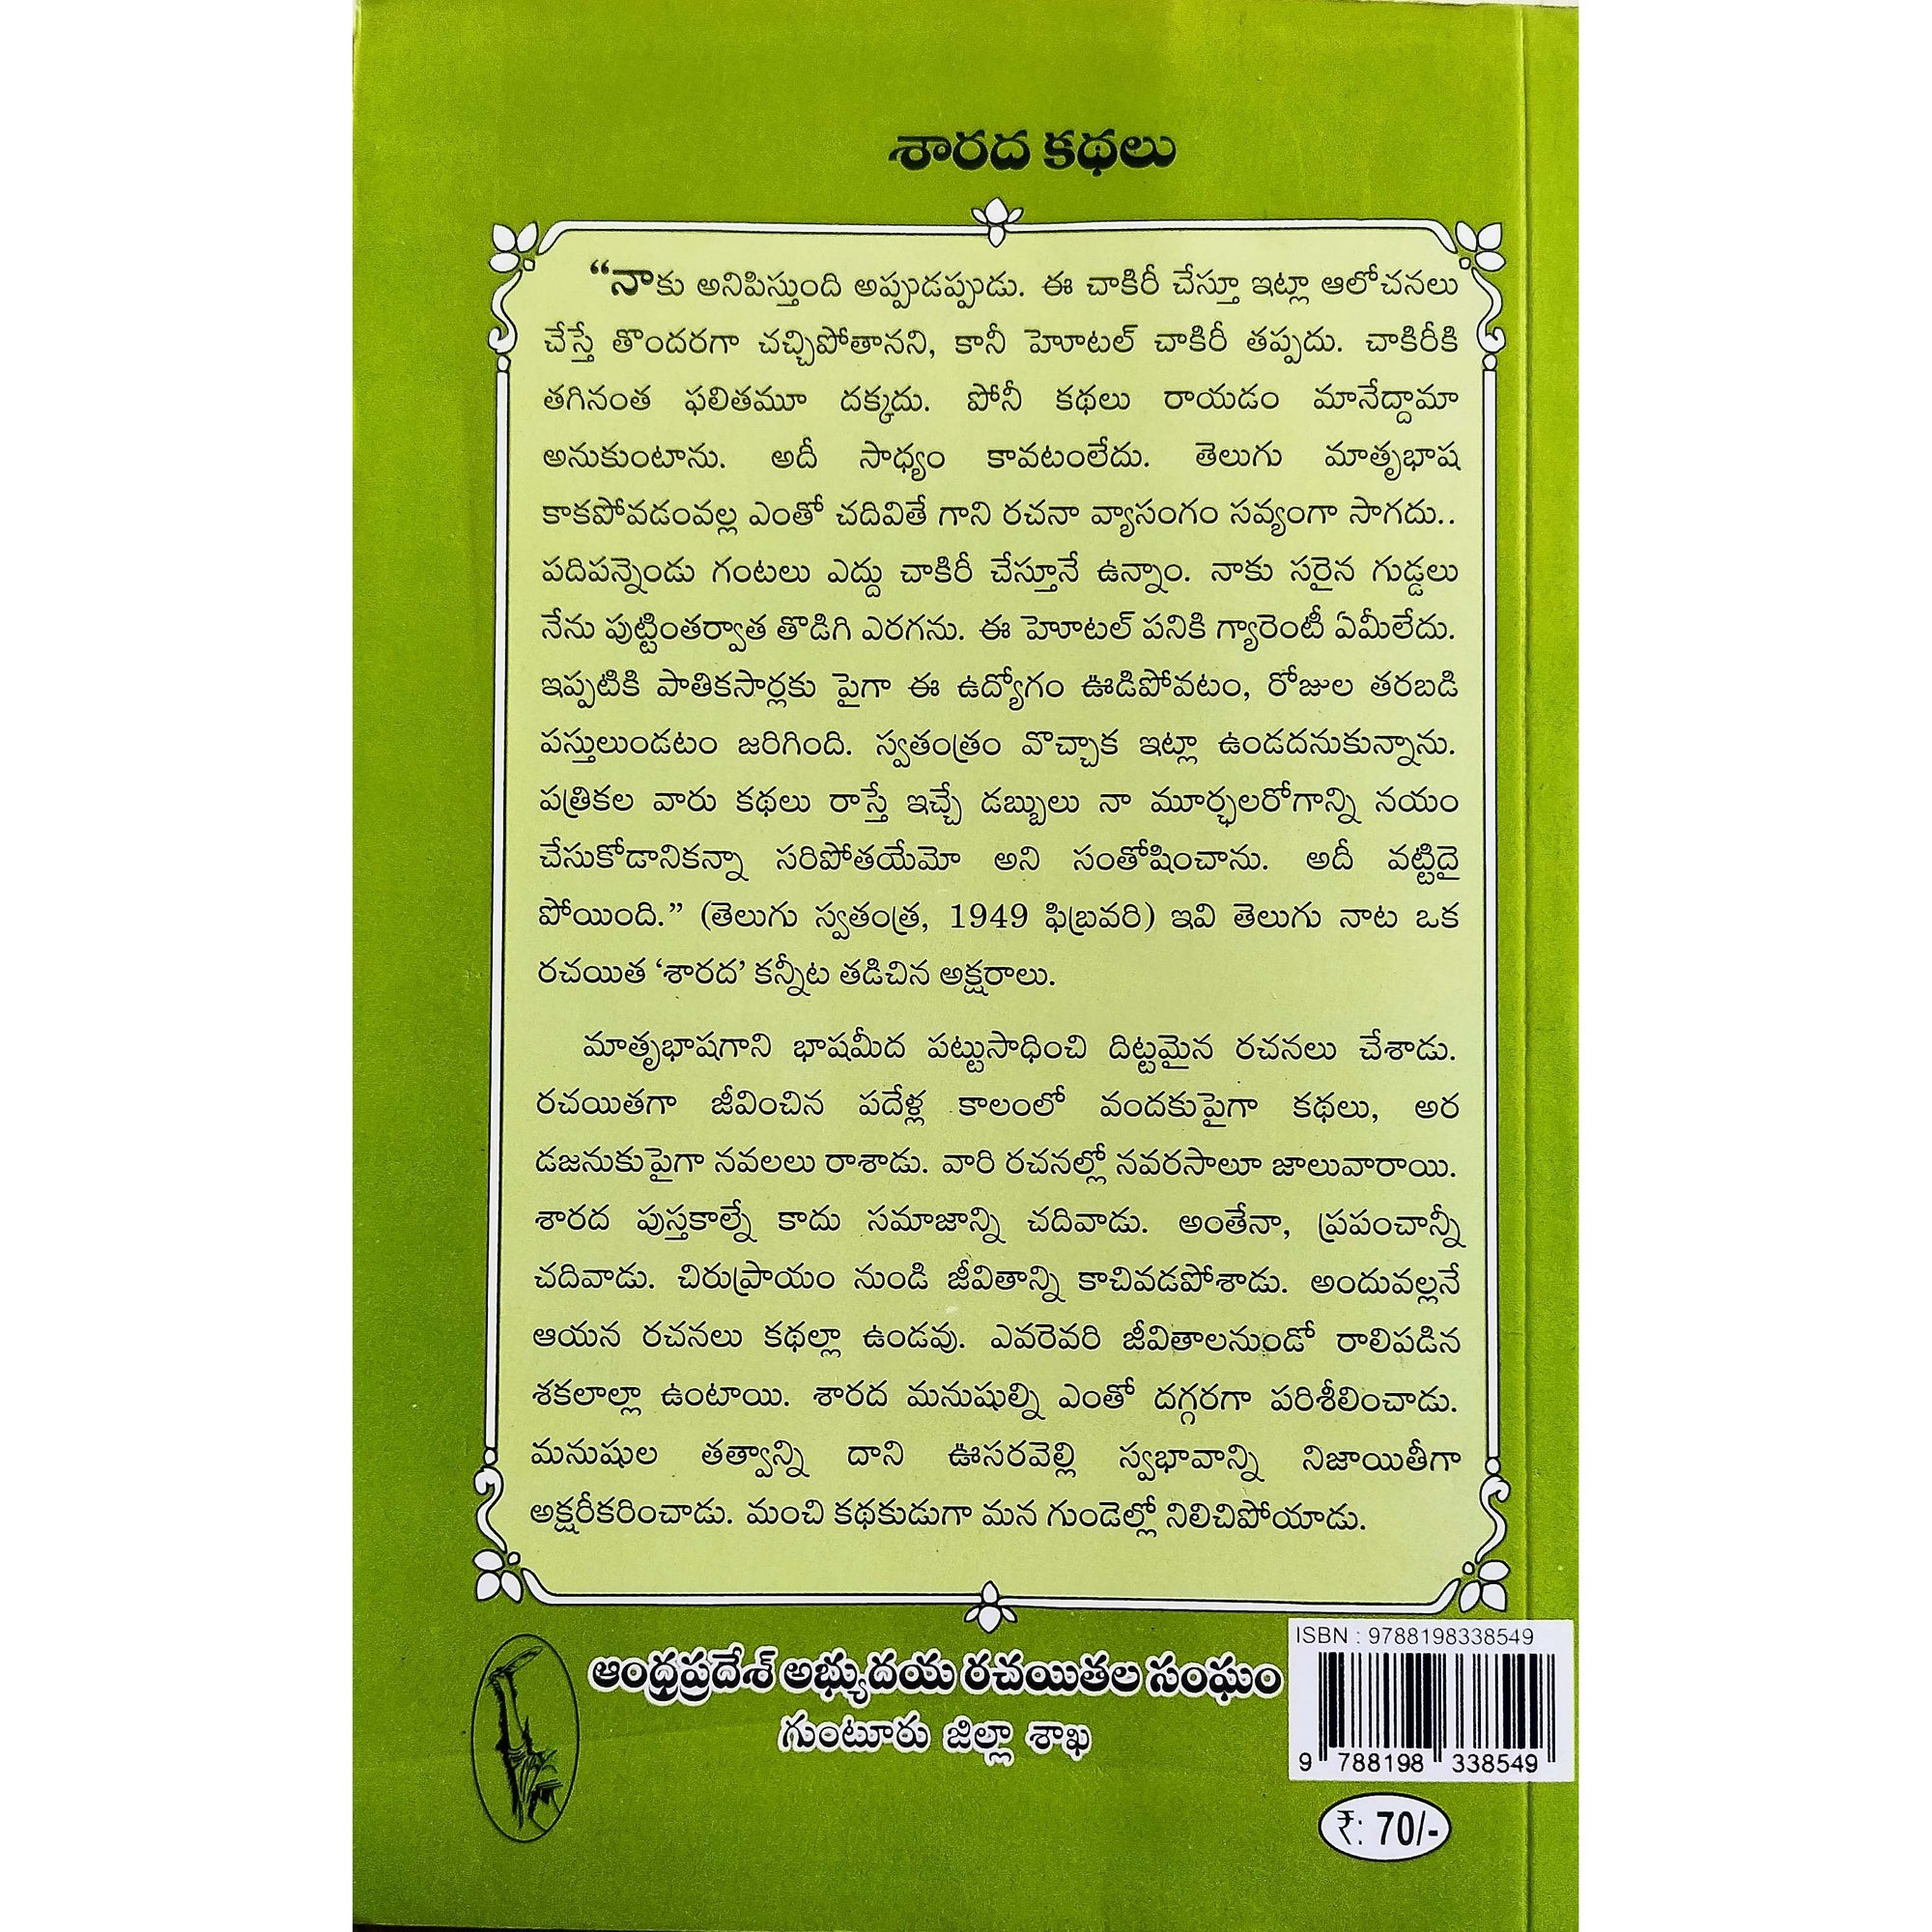 శారద కథలు
“నాకు అనిపిస్తుంది అప్పుడప్పుడు. ఈ చాకిరీ చేస్తూ ఇట్లా ఆలోచనలు
చేస్తే తొందరగా చచ్చిపోతానని, కానీ హెూటల్ చాకిరీ తప్పదు. చాకిరీకి
తగినంత ఫలితమూ దక్కదు. పోనీ కథలు రాయడం మానేద్దామా
అనుకుంటాను. అదీ సాధ్యం కావటంలేదు. తెలుగు మాతృభాష
కాకపోవడంవల్ల ఎంతో చదివితే గాని రచనా వ్యాసంగం సవ్యంగా సాగదు..
పదిపన్నెండు గంటలు ఎద్దు చాకిరీ చేస్తూనే ఉన్నాం. నాకు సరైన గుడ్డలు
నేను పుట్టింతర్వాత తొడిగి ఎరగను. ఈ హెూటల్ పనికి గ్యారెంటీ ఏమీలేదు.
ఇప్పటికి పాతికసార్లకు పైగా ఈ ఉద్యోగం ఊడిపోవటం, రోజుల తరబడి
పస్తులుండటం జరిగింది. స్వతంత్రం వొచ్చాక ఇట్లా ఉండదనుకున్నాను.
పత్రికల వారు కథలు రాస్తే ఇచ్చే డబ్బులు నా మూర్ఛలరోగాన్ని నయం
చేసుకోడానికన్నా సరిపోతయేమో అని సంతోషించాను. అదీ వట్టిదై
పోయింది.” (తెలుగు స్వతంత్ర, 1949 ఫిబ్రవరి) ఇవి తెలుగు నాట ఒక
రచయిత ‘శారద’ కన్నీట తడిచిన అక్షరాలు.
మాతృభాషగాని భాషమీద పట్టుసాధించి దిట్టమైన రచనలు చేశాడు.
రచయితగా జీవించిన పదేళ్ల కాలంలో వందకుపైగా కథలు, అర
డజనుకుపైగా నవలలు రాశాడు. వారి రచనల్లో నవరసాలూ జాలువారాయి.
శారద పుస్తకాల్నే కాదు సమాజాన్ని చదివాడు. అంతేనా, ప్రపంచాన్నీ
చదివాడు. చిరుప్రాయం నుండి జీవితాన్ని కాచివడపోశాడు. అందువల్లనే
ఆయన రచనలు కథల్లా ఉండవు. ఎవరెవరి జీవితాలనుండో రాలిపడిన
శకలాల్లా ఉంటాయి. శారద మనుషుల్ని ఎంతో దగ్గరగా పరిశీలించాడు.
మనుషుల తత్వాన్ని దాని ఊసరవెల్లి స్వభావాన్ని నిజాయితీగా
అక్షరీకరించాడు. మంచి కథకుడుగా మన గుండెల్లో నిలిచిపోయాడు.
ఆంధ్రప్రదేశ్ అభ్యుదయ రచయితల సంఘం
గుంటూరు జిల్లా శాఖ
ISBN : 9788198338549
9 788198 338549
₹: 70/-